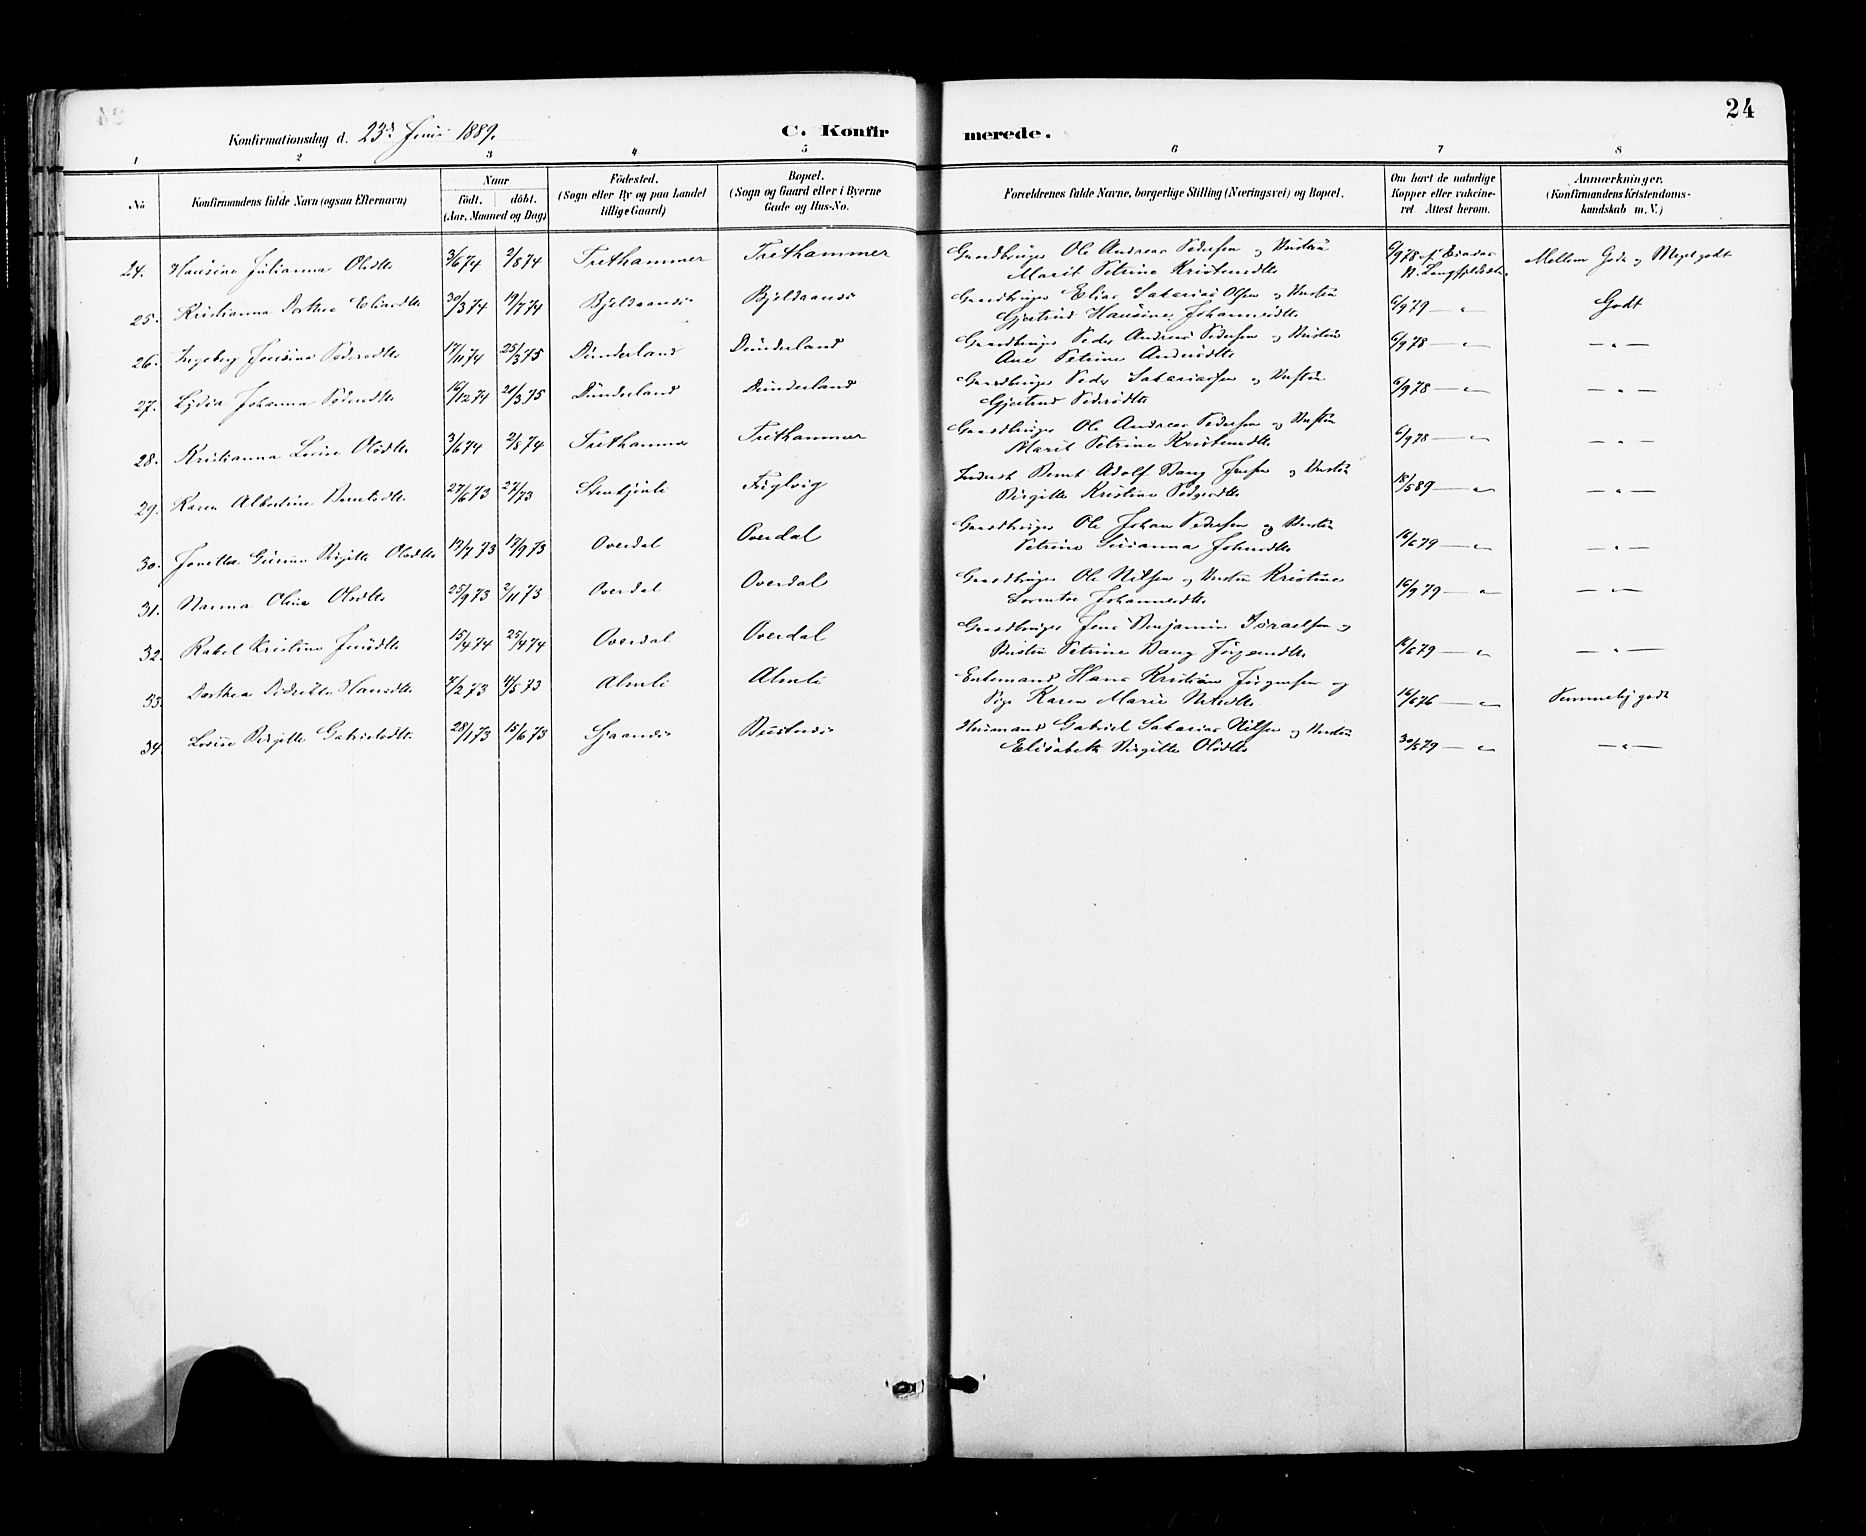 24
Konfirmationsdag d. 23d Juni 1889.
C. Konfirmerede.
1 2 3 4 5 6 7 8
No
Konfirmandens fulde Navn (ogsaa Efternavn)
Naar
födt. döbt.
(Aar, Maaned og Dag)
Födested.
(Sogn eller By og paa Landet
tillige Gaard)
Bopæl.
(Sogn og Gaard eller i Byerne
Gade og Hus-No.
Forældrenes fulde Navne, borgerlige Stilling (Næringsvei) og Bopæl.
Om havt de naturlige
Kopper eller vakcine-
ret. Attest herom.
Anmærkninger.
(Konfirmandens Kristendoms-
kundskab m. V.)
24. Hansine Julianna Olsdtr 3/6 74 2/8 74 Trethammer Trethammer Gaardbruger Ole Andreas Pedersen og Hustru
Marit Petrine Kristensdtr 6/9 78 Mellem Godt og Meget godt
25. Kristianna Dorthea Eliasdtr 30/3 74 19/7 74 Bjeldaanes Bjeldaanes Gaardbruger Elias Sakarias Olsen og Hustru
Gjertrud Hansine Johannesdtr 6/9 79 — " Godt
26. Ingeborg Jensine Pedersdtr 17/11 74 25/3 75 Dunderland Dunderland Gaardbruger Peder Andreas Pedersen og Hustru
Ane Petrine Andersdtr 6/9 78 — " — " —
27. Lydia Johanna Pedersdtr 16/12 74 21/3 75 Dunderland Dunderland Gaardbruger Peder Sakariassen og Hustru
Gjertrud Pedersdtr 6/9 78 — " — " —
28. Kristianna Lovise Olsdtr 3/6 74 2/8 74 Trethammer Trethammer Gaardbruger Ole Andreas Pedersen og Hustru
Marit Petrine Kristensdtr 6/9 78 — " — " —
29. Karen Albertine Berntsdtr 27/6 73 27/ 73 Fuglvig Inderst Bernt Adolf Bang Jensen og Hustru
Birgitte Kristine Pedersdtr 18/5 89 — " — " —
30. Birgitte Olsdtr 17/7 73 17/9 73 Overdal Overdal Gaardbruger Ole Johan Pedersen og Hustru
Petrine Susanna Johnsdtr 16/6 79 — " — " —
31. Nanna Olina Olsdtr 25/9 73 2/11 73 Overdal Overdal Gaardbruger Ole Nilsen og Hustru Kristine
Lorentse Johannesdtr 16/9 79 — " — " —
32. Rakel Kristine Jensdtr 15/4 74 25/4 74 Overdal Overdal Gaardbruger Jens Benjamin Israelsen og
Hustru Petrine Bang Jörgensdtr 16/6 79 — " — " —
33. Dorthea Didrikke Hansdtr 7/2 73 4/5 73 Almli Almli Enkemand Hans Kristian Jörgensen og
Pige Karen Marie Nilsdtr 16/6 76 — " Temmelig godt
34. Lovise Birgitte Gabrielsdtr 28/1 73 15/6 73 Husmand Gabriel Sakarias Nilsen og Hustru
Elisabeth Birgitte Olsdtr 30/5 79 — " — " —